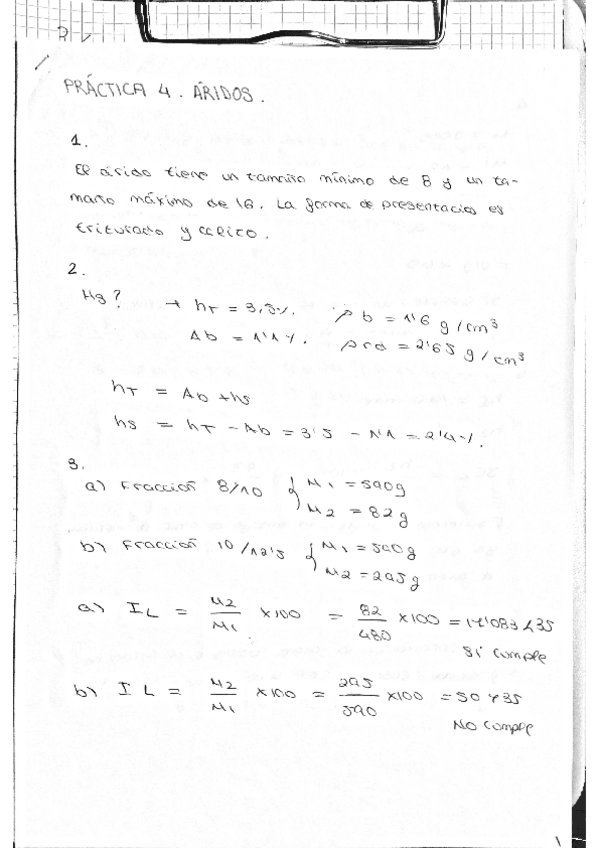 PRÁCTICA 4. ÁRIDOS.
1.
El árido tiene un tamaño mínimo de 8 y un ta-
maño máximo de 16. La forma de presentación es
triturado y calizo.
2.
Hs? → hT = 3,5%. ρb = 1'6 g/cm³
Ab = 1'1%. ρrd = 2'65 g/cm³
hT = Ab + hs
hs = hT - Ab = 3'5 - 1'1 = 2'4%.
3.
a) Fracción 8/10 { M1 = 590g
M2 = 82g
b) Fracción 10/12'5 { M1 = 590g
M2 = 295g
a) IL = M2/M1 x100 = 82/480 x100 = 17'083 < 35
Sí cumple
b) IL = M2/M1 x100 = 295/590 x100 = 50 > 35
No cumple
1